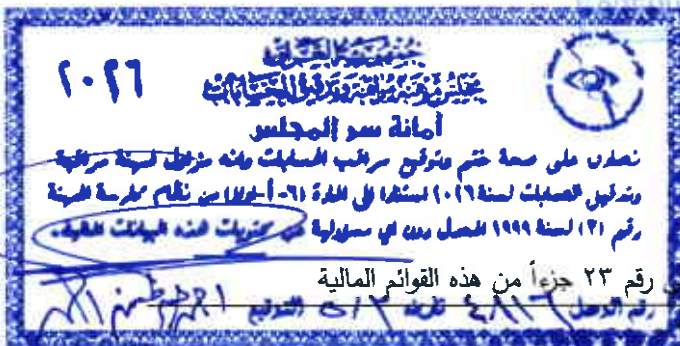 جمهورية العراق
مجلس مهنة مراقبة وتدقيق الحسابات
٢٠١٦
أمانة سر المجلس
نصادق على صحة ختم وتوقيع مراقب الحسابات وانه مزاول لمهنة مراقبة
وتدقيق الحسابات لسنة ٢٠١٦ استنادا الى المادة (٦-أ-اولا) من نظام ممارسة المهنة
رقم (٣) لسنة ١٩٩٩ المعدل دون اي مسؤولية عن محتويات هذه البيانات المالية.
رقم ٢٣ جزءاً من هذه القوائم المالية
رقم الوصل تاريخه التوقيع